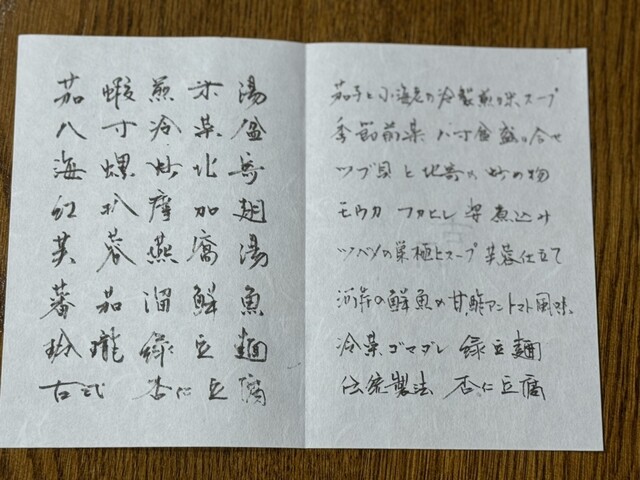 茄蝦煎米湯
八寸冷菜盆
海螺炒北寄
紅扒摩加翅
芙蓉燕窩湯
蕃茄溜鮮魚
玲瓏緑豆麺
古式杏仁豆腐
茄子と小海老の冷製煎り米スープ
季節前菜 八寸盆盛り合せ
ツブ貝と北寄の炒め物
モウカフカヒレ 煮込み
ツバメの巣極上スープ 芙蓉仕立て
鮮魚の甘酢アン トマト風味
冷菜ゴマダレ 緑豆麺
伝統製法 杏仁豆腐